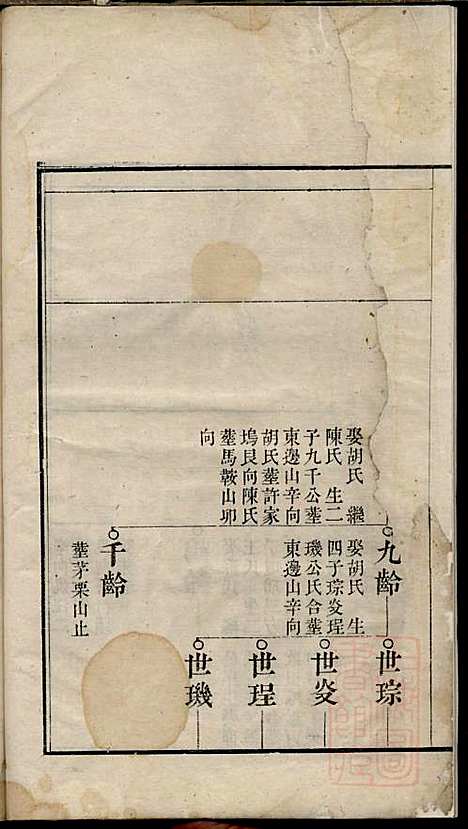 娶胡氏　繼
陳氏　生二
子九千公塟
東邊山辛向
胡氏塟許家
塢艮向陳氏
塟馬鞍山卯
向
九齡
娶胡氏　生
四子琮炎珵
璣公氏合塟
東邊山辛向
千齡
塟茅栗山止
世琮
世炎
世珵
世璣